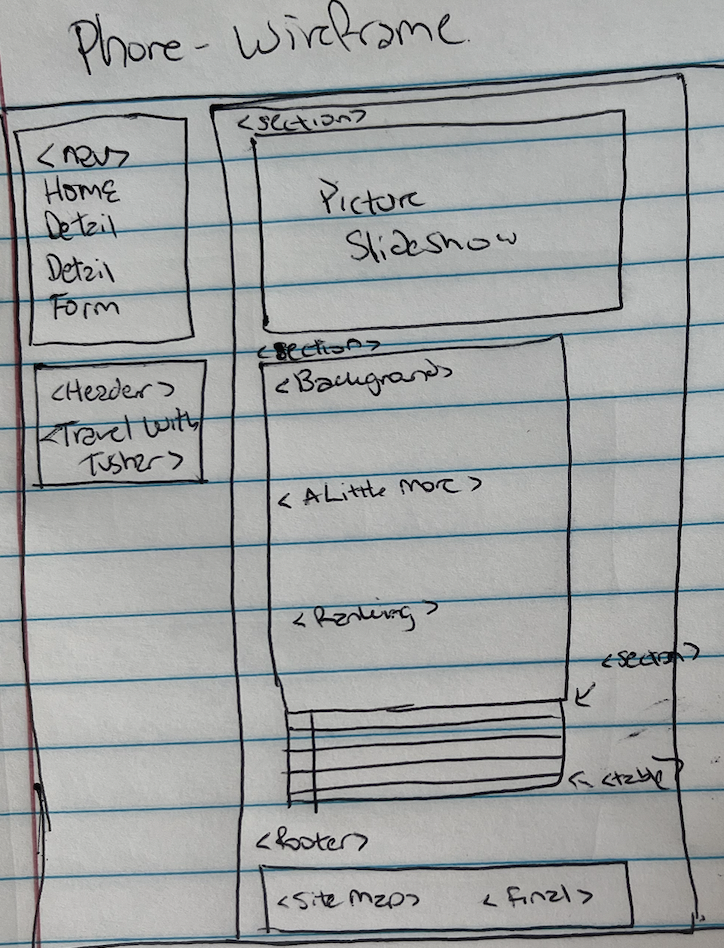 Phone - Wireframe
<nav>
Home
Detail
Detail
Form
<Header>
<Travel With
Tushar>
<section>
Picture
Slideshow
<section>
<Background>
<A Little More>
<Ranking>
<section>
<table>
<footer>
<Site Map> <Final>